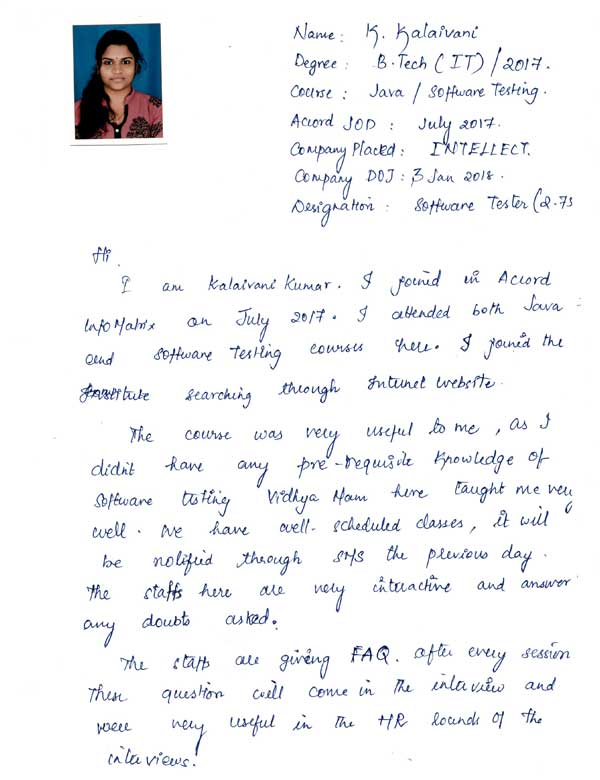 Name : K. Kalaivani
Degree : B.Tech (IT) / 2017.
Course : Java / Software Testing.
Accord JOD : July 2017.
Company Placed : INTELLECT.
Company DOJ : 3 Jan 2018.
Designation : Software Tester (2.75
Hi
I am Kalaivani Kumar. I joined in Accord
InfoMatrix on July 2017. I attended both Java
and Software Testing courses here. I joined the
Institute searching through Internet website.
The course was very useful to me, as I
didn't have any pre-requisite knowledge of
Software testing Vidhya Mam here taught me very
well. We have well-scheduled classes, it will
be notified through SMS the previous day.
The staffs here are very interactive and answer
any doubts asked.
The staff are giving FAQ. after every session
These question will come in the interview and
were very useful in the HR rounds of the
interviews.